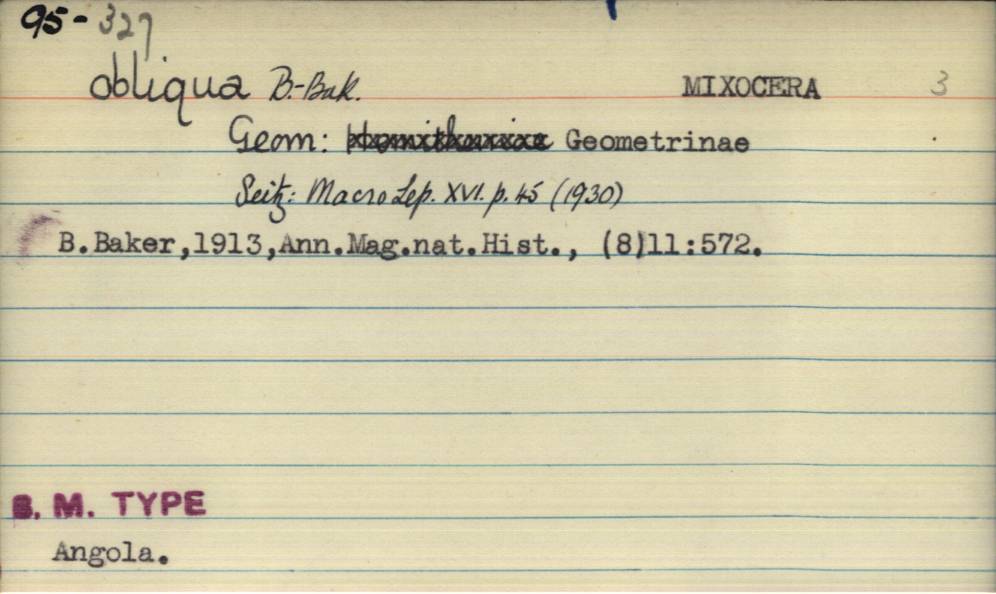 95-327
obliqua B.-Bak. MIXOCERA 3
Geom: Geometrinae
Seitz: Macro Lep. XVI. p. 45 (1930)
B.Baker,1913,Ann.Mag.nat.Hist., (8)11:572.
B. M. TYPE
Angola.